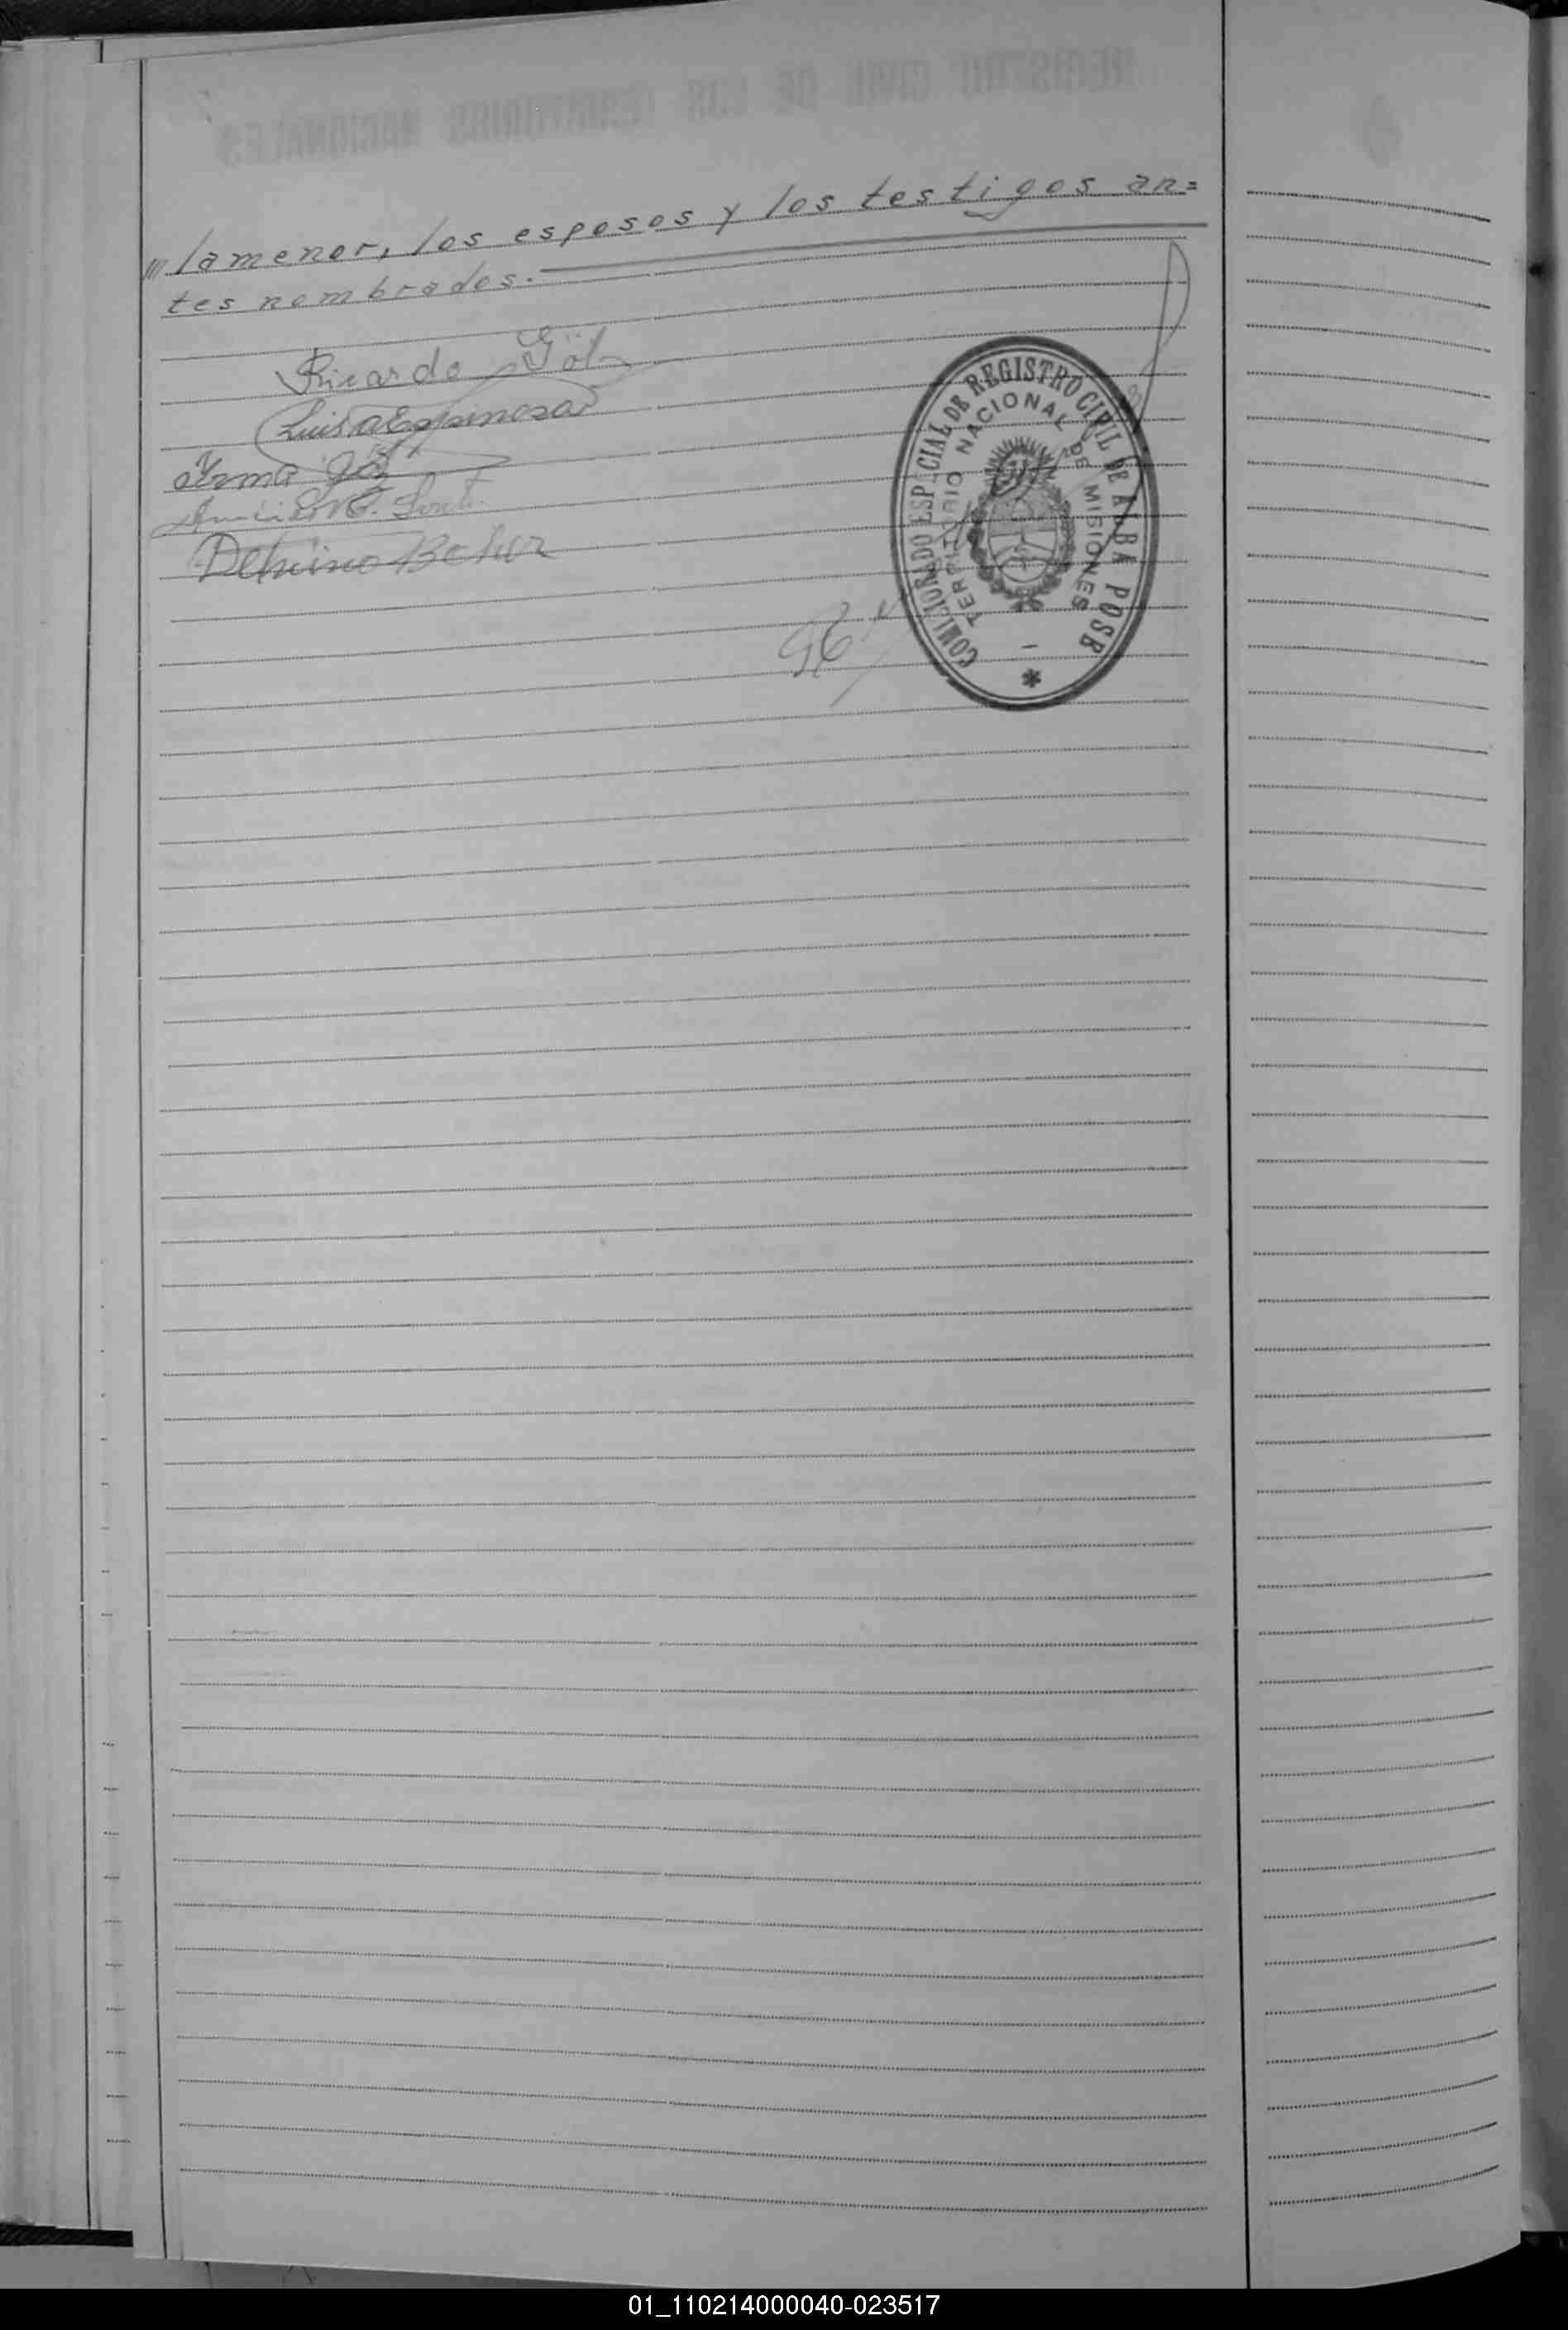 /// la menor, los esposos y los testigos an=
tes nombrados.
Ricardo Göl
Luis A Espinosa
Irma Göl
COMICIONADO ESPECIAL DE REGISTRO CIVIL DE ALBA POSE
TERRITORIO NACIONAL DE MISIONES
01_110214000040-023517